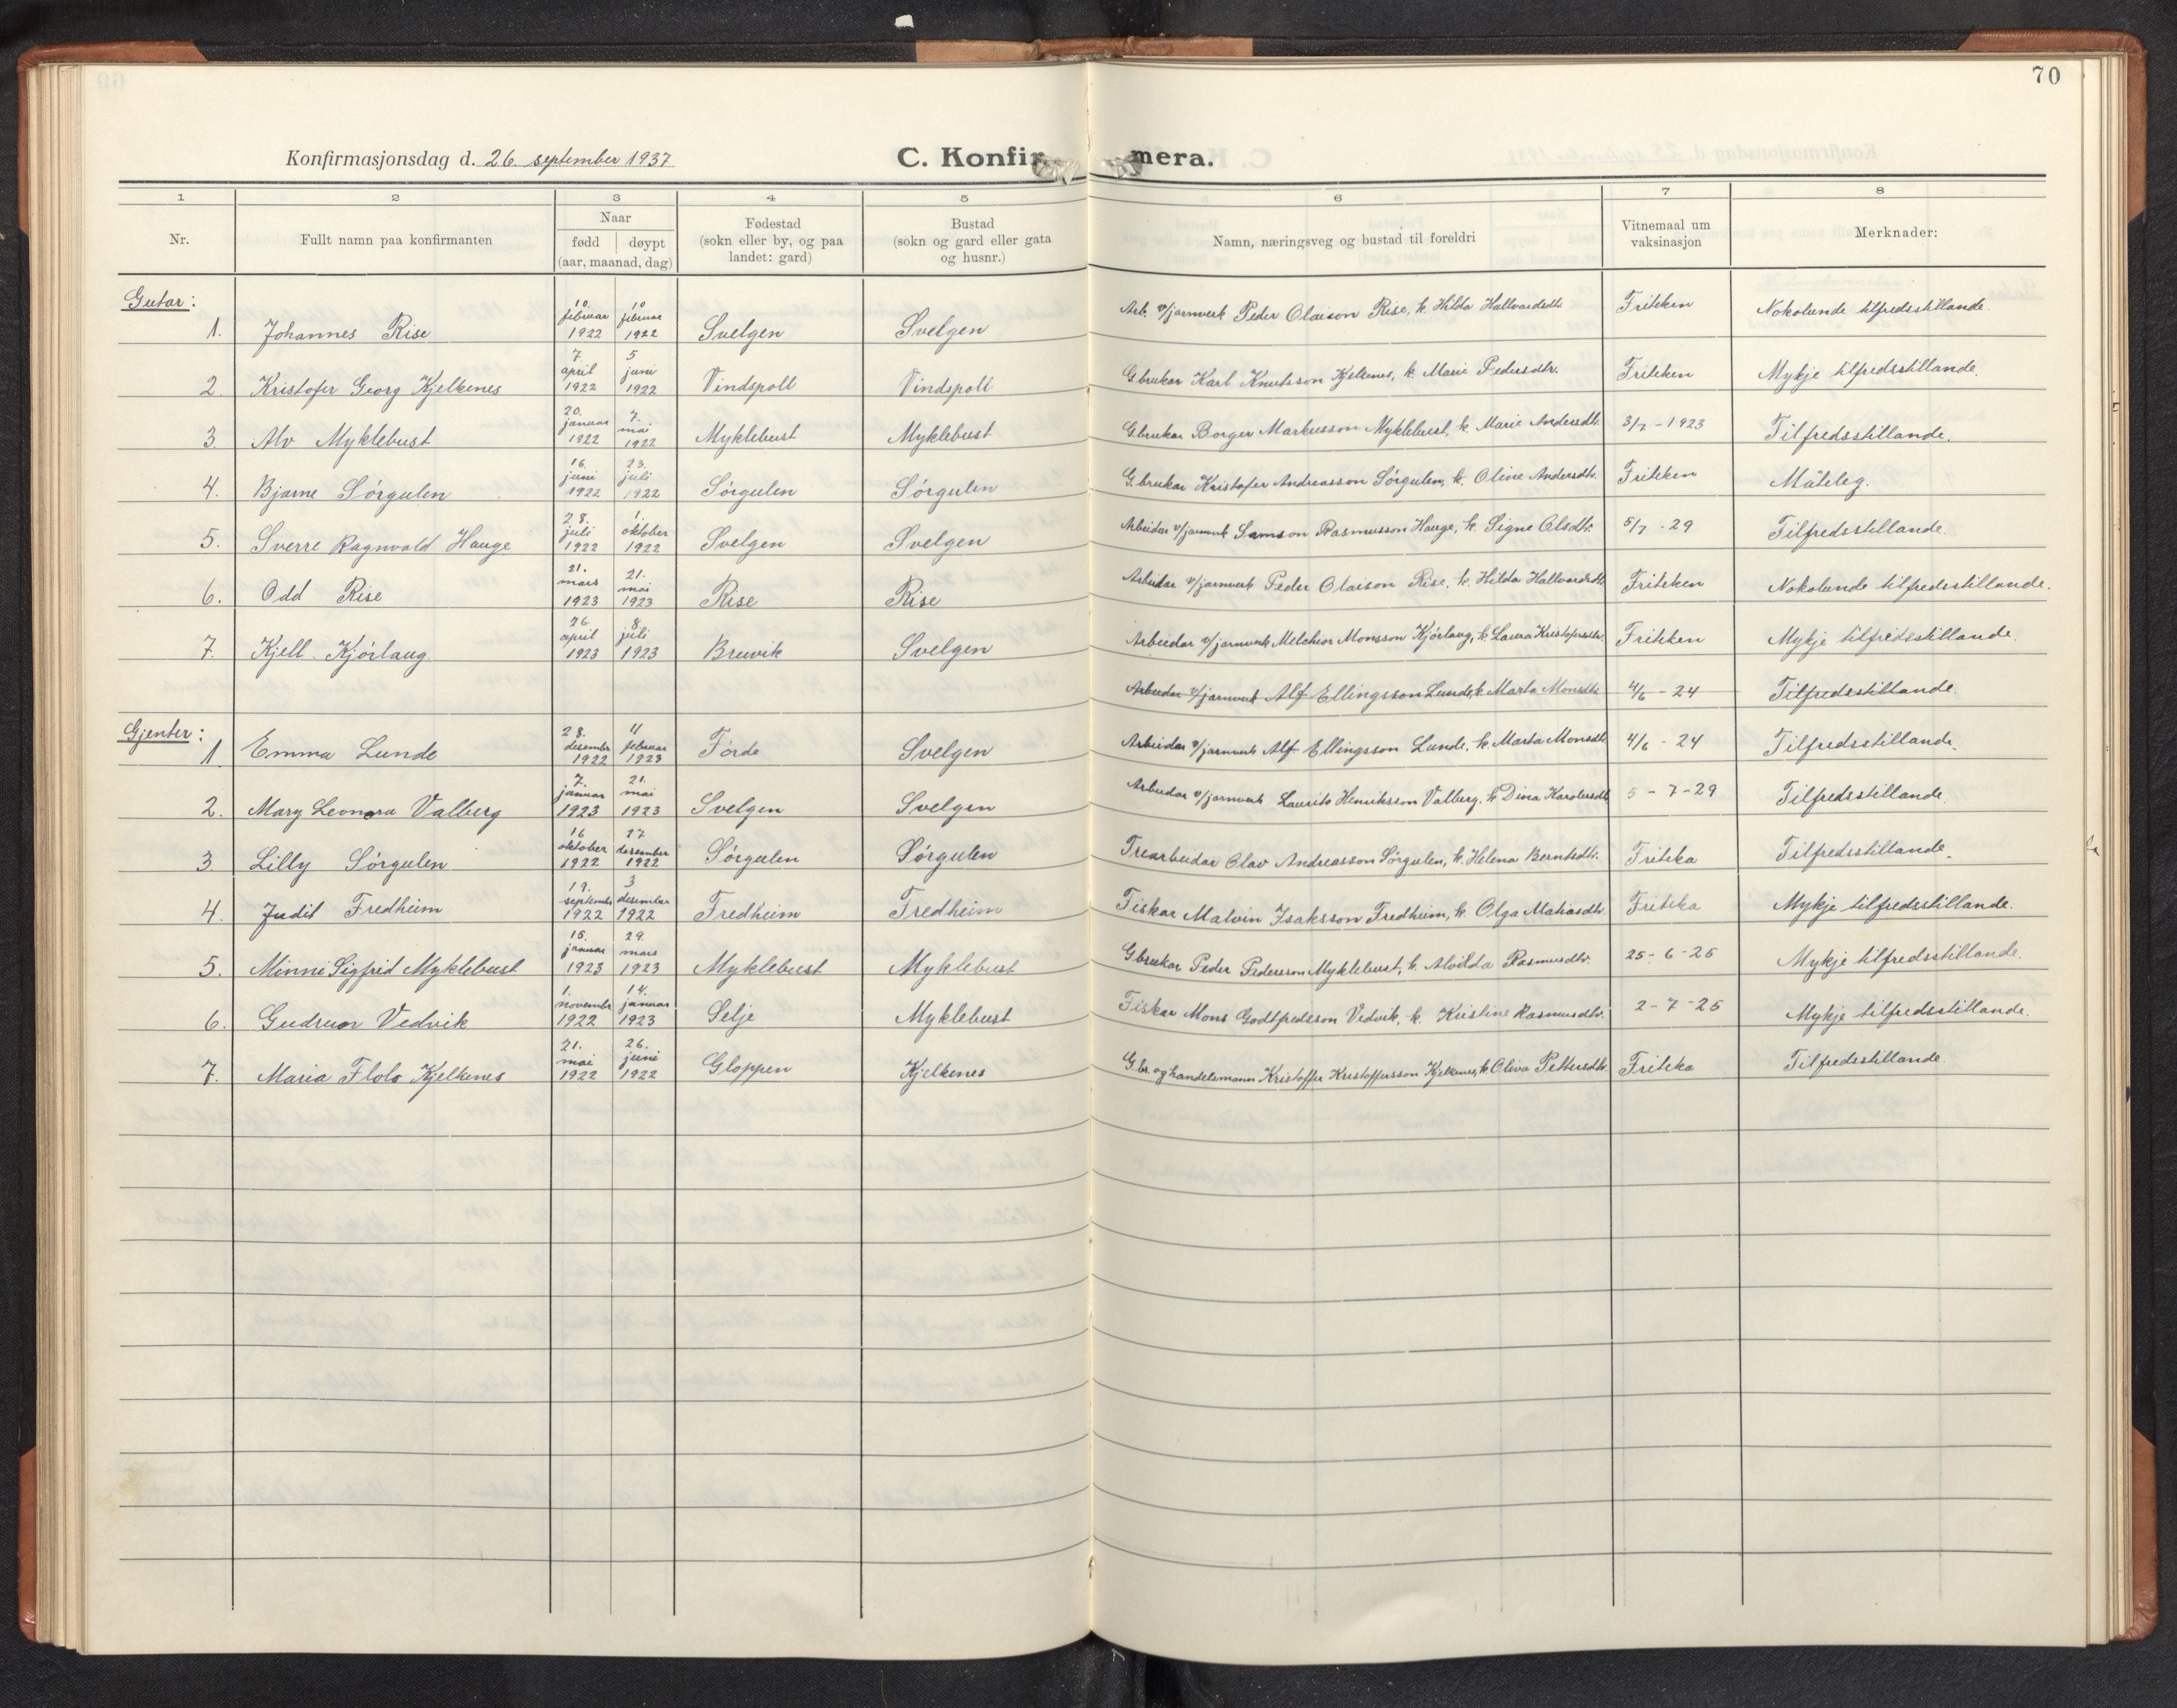 70
Konfirmasjonsdag d. 26. september 1937 C. Konfirmera.
1 2 3 4 5 6 7 8
Nr. Fullt namn paa konfirmanten Naar født døypt (aar, maanad, dag) Fødestad (sokn eller by, og paa landet: gard) Bustad (sokn og gard eller gata og husnr.) Namn, næringsveg og bustad til foreldri Vitnemaal um vaksinasjon Merknader:
Gutar:
1. Johannes Rise 10. februar 1922 10 februar 1922 Svelgen Svelgen Arb. v/jarnverk Peder Olaison Rise, k. Hilda Hallvardsdtr. Fritiken Nokolunde tilfredsstillande.
2. Kristofer Georg Kjelkenes 7. april 1922 5 juni 1922 Vindspoll Vindspoll G.brukar Karl Knutsson Kjelkenes, k. Marie Pedersdtr. Fritiken Mykje tilfredsstillande.
3. Alv Myklebust 20. januar 1922 7. mai 1922 Myklebust Myklebust G.brukar Borger Markusson Myklebust, k. Marie Andersdtr. 3/7 - 1923 Tilfredsstillande.
4. Bjarne Sørgulen 16. juni 1922 23. juli 1922 Sørgulen Sørgulen G.brukar Kristofer Andreasson Sørgulen, k. Oline Andersdtr. Fritiken Måteleg.
5. Sverre Ragnvald Hauge 28. juli 1922 1. oktober 1922 Svelgen Svelgen Arbeidar v/jarnverk Samson Rasmusson Hauge, k. Signe Olsdtr. 5/7 - 29 Tilfredsstillande.
6. Odd Rise 21. mars 1923 21. mai 1923 Rise Rise Arbeidar v/jarnverk Peder Olaison Rise, k. Hilda Hallvardsdtr. Fritiken Nokolunde tilfredsstillande.
7. Kjell Kjørlaug. 26. april 1923 8. juli 1923 Bruvik Svelgen Arbeidar v/jarnverk Melchior Monsson Kjørlaug, k. Laura Kristofersdtr. Fritiken Mykje tilfredsstillande.
Arbeidar v/jarnverk Alf Ellingsson Lunde, k. Marta Monsdtr. 4/6 - 24 Tilfredsstillande
Gjenter:
1 Emma Lunde 28. desembr 1922 11 februar 1923 Førde Svelgen Arbeidar v/jarnverk Alf Ellingsson Lunde, k. Marta Monsdtr. 4/6 - 24 Tilfredsstillande.
2. Mary Leonora Valberg 7. januar 1923 21. mai 1923 Svelgen Svelgen Arbeidar v/jarnverk Laurits Henriksson Valberg, k. Dina Karolusdtr. 5 - 7 - 29 Tilfredsstillande.
3. Lilly Sørgulen 16 oktober 1922 27 desember 1922 Sørgulen Sørgulen Trearbeidar Olav Andreasson Sørgulen, k. Helena Berntsdtr. Fritika Tilfredsstillande.
4. Judit Fredheim 19. septembr 1922 3 desember 1922 Fredheim Fredheim Fiskar Malvin Isaksson Fredheim, k. Olga Matiasdtr. Fritika Mykje tilfredsstillande.
5. Minni Sigfrid Myklebust 15. januar 1923 29. mars 1923 Myklebust Myklebust G.brukar Peder Pedersson Myklebust, k. Alvilda Rasmusdtr. 25 - 6 - 25 Mykje tilfredsstillande.
6. Gudrun Vedvik 1. novembr 1922 14. januar 1923 Selje Myklebust Fiskar Mons Godtfredsson Vedvik, k. Kristine Rasmusdtr. 2 - 7 - 25 Mykje tilfredsstillande.
7. Maria Flolo Kjelkenes 21. mai 1922 26. juni 1922 Gloppen Kjelkenes G.br. og handelsmann Kristoffer Kristoffersson Kjelkenes, k. Oliva Pettersdtr. Fritika Tilfredsstillande.